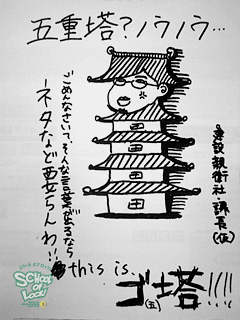 五重塔?ノウノウ…
ごめんなさいて、そんな言葉が出るなら
ネタなど要らんわ!!
建設親衛社・課長(仮)
this is
ゴ塔!!!!
(五)
SCHOOL
OF
LOCK!